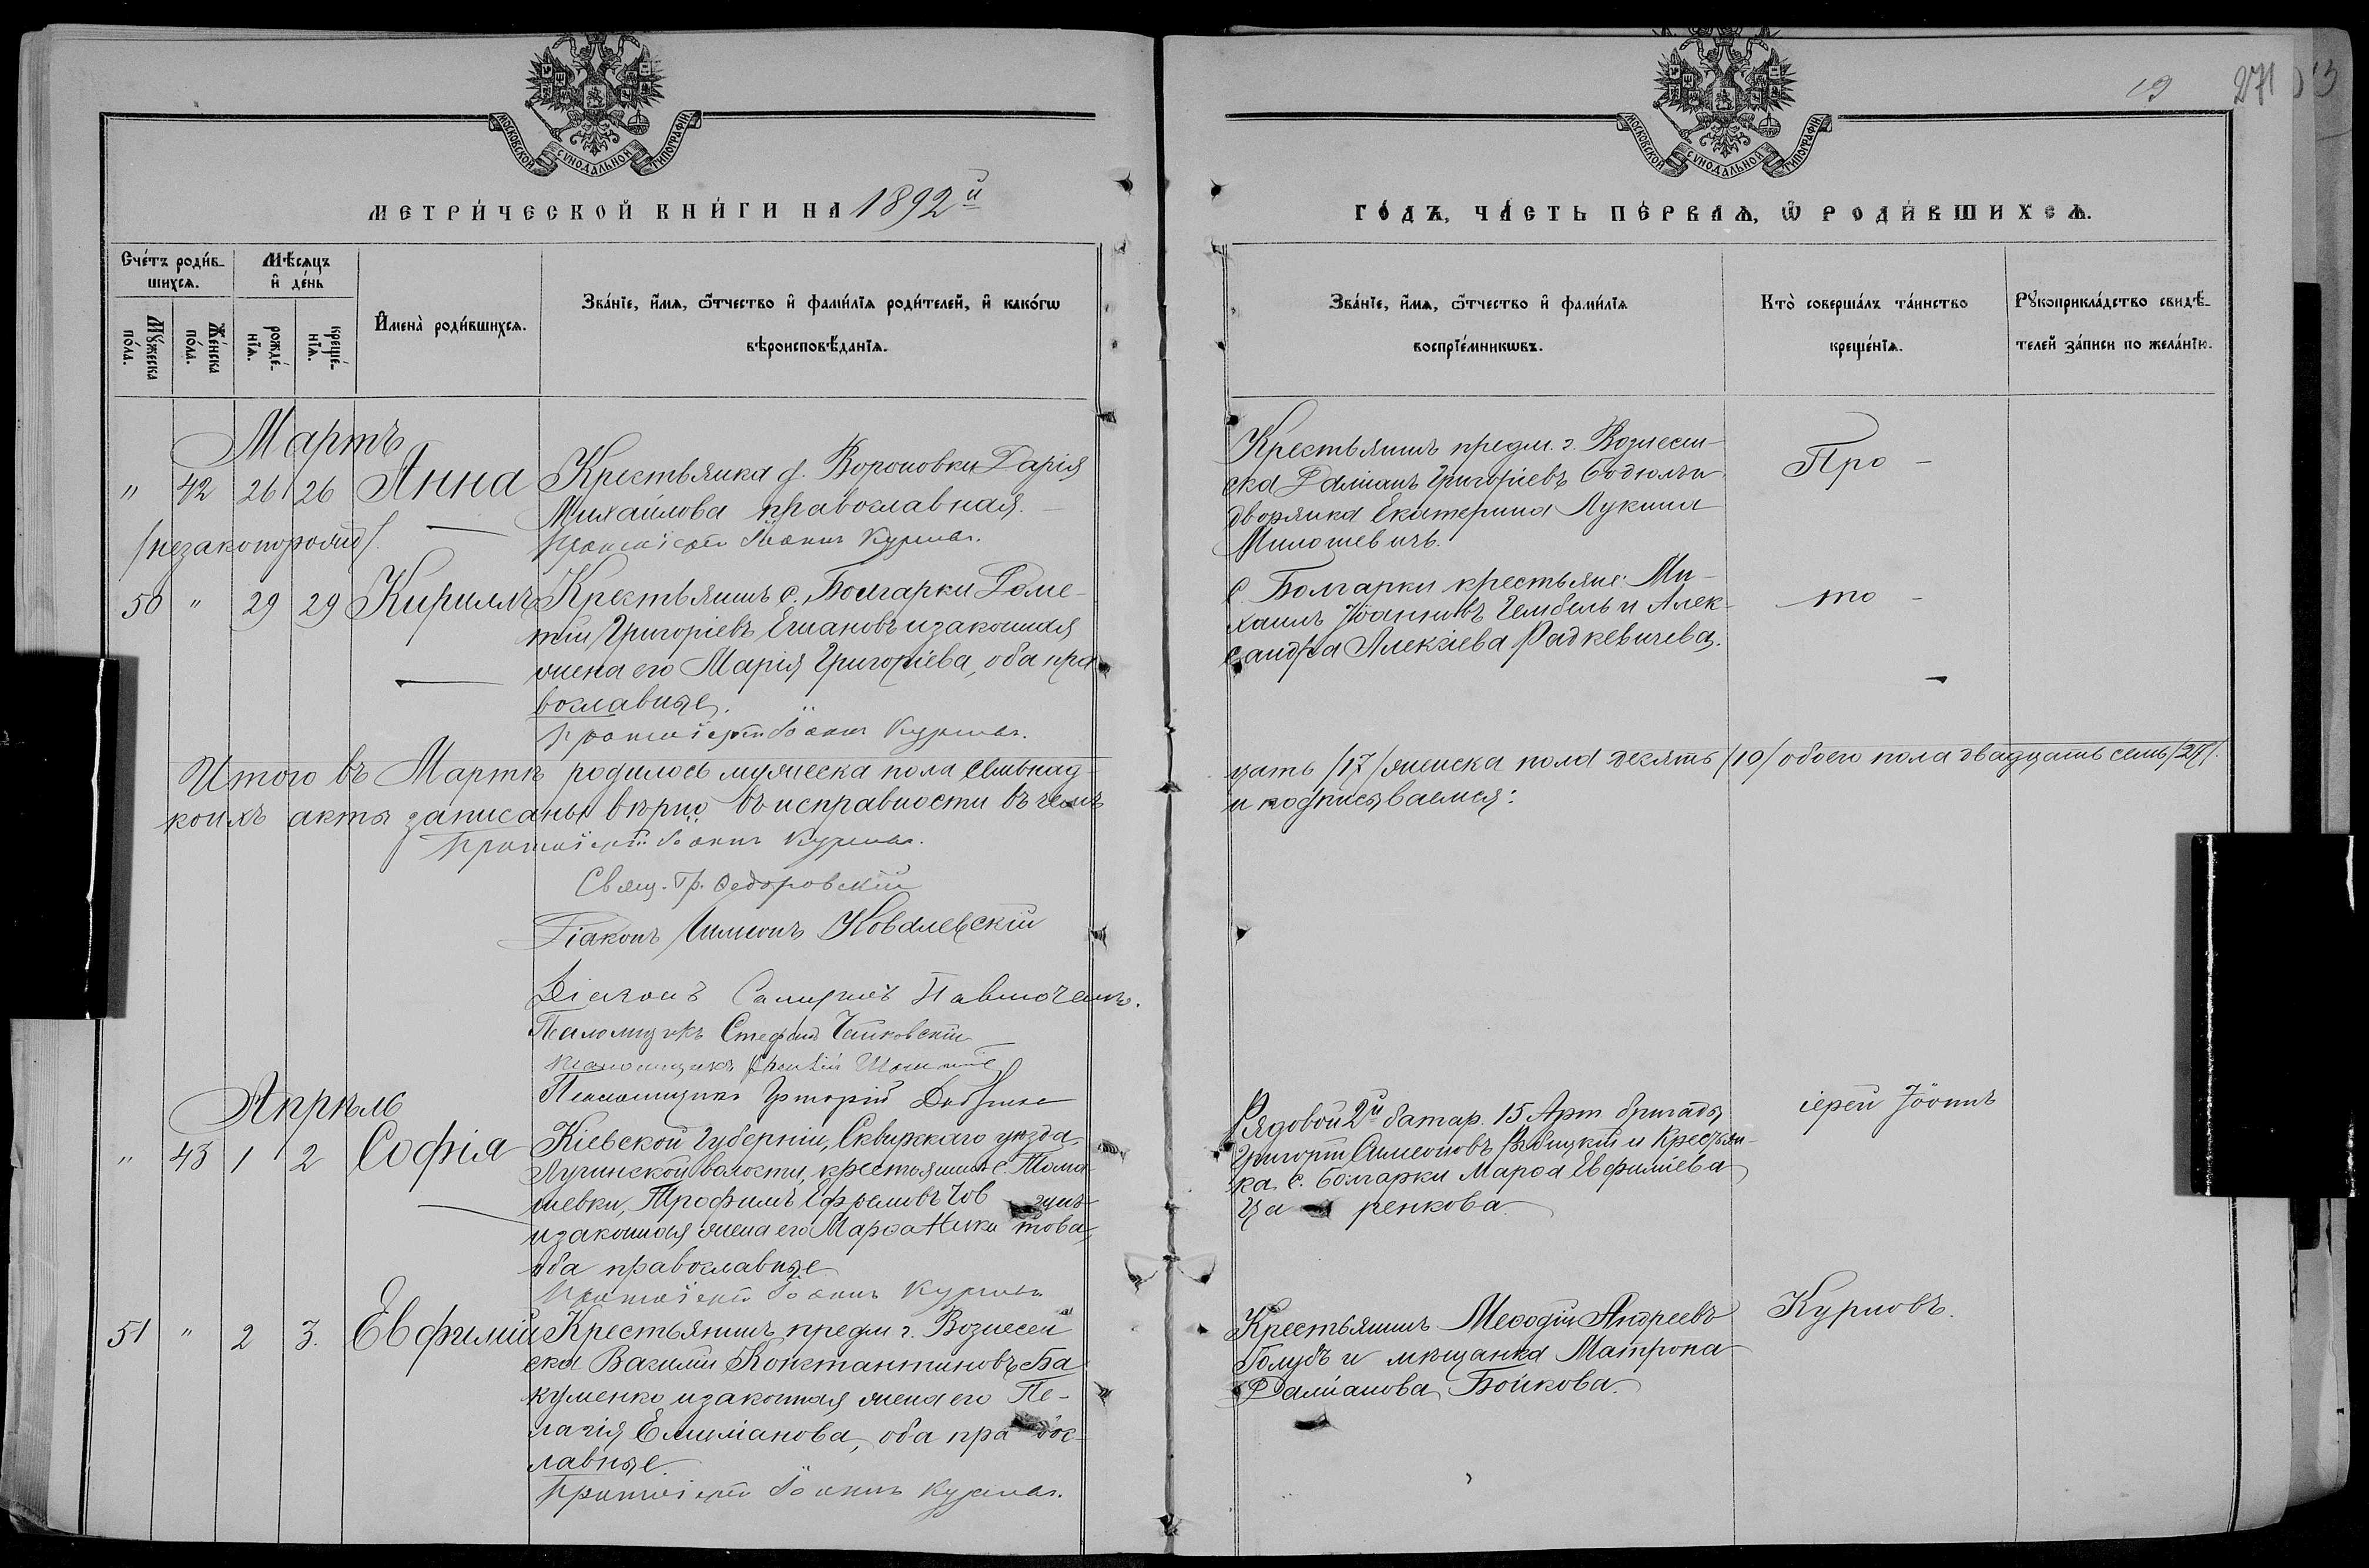 МОСКОВСКОЙ СѴНОДАЛЬНОЙ ТИПОГРАФІИ
МЕТРИ́ЧЕСКОЙ КНИ́ГИ НА 1892й
Счéтъ роди́в-
шихся.
Мѣ́сяцъ
и дéнь
Мꙋ́жеска
по́ла.
Жéнска
по́ла.
рождé-
нїя.
крещé-
нїя.
Имена̀ роди́вшихся.
Зва́нїе, и́мя, ѻ́тчество и фами́лїя роди́телей, и како́гѡ
вѣроисповѣ́данїя.
Мартъ
" 42 26 26 Анна
/незаконорожд/.
Крестьянка д. Вороновки Дарія
Михайлова православная.
Протоіерей Іоаннъ Курловъ.
50 " 29 29 Кириллъ
Крестьянинъ с. Болгарки Доме-
тій Григоріевъ и законная
жена его Марія Григоріева, оба пра-
вославные.
Протоіерей Іоаннъ Курловъ.
Итого въ Мартѣ родилось мужеска пола семьнад-
коихъ акты записаны вѣрно въ исправности въ чемъ
Протоіерей Іоаннъ Курловъ.
Свящ. Гр. Ѳедоровскій
Діаконъ Симеонъ Ковалевскій
Діаконъ
Псаломщикъ Стефанъ Чайковскій
Псаломщикъ
Псаломщикъ Григорій
Апрѣль
" 43 1 2 Софія
Кіевской Губерніи, Сквирскаго уѣзда,
волости, крестьянинъ с. Тома-
шевки, Трофимъ Ефремовъ
и законная жена его Марѳа Никитова,
оба православные
Протоіерей Іоаннъ Курловъ
51 " 2 3. Евфимій
Крестьянинъ предм. г. Вознесен-
ска Василій Константиновъ Ба-
куменко и законная жена его Пе-
лагія Емиліанова, оба правос-
лавные.
Протоіерей Іоаннъ Курловъ.
19 271
МОСКОВСКОЙ СѴНОДАЛЬНОЙ ТИПОГРАФІИ
ГО́ДЪ, ЧА́СТЬ ПЕ́РВАЯ, Ѡ РОДИ́ВШИХСЯ.
Зва́нїе, и́мя, ѻ́тчество и фами́лїя
воспрїе́мникѡвъ.
Кто̀ соверша́лъ та́инство
креще́нїя.
Рꙋкоприкла́дство свидѣ́-
телей за́писи по жела́нїю.
Крестьянинъ предм. г. Вознесен-
ска Даміанъ Григоріевъ и
дворянка Екатерина Лукина
Милошевичъ.
Про-
с. Болгарки крестьяне: Ми-
хаилъ Іоанновъ Гембель и Алек-
сандра Алексіева Радкевичева.
то-
цать /17/ женска пола десять /10/ обоего пола двадцать семь /27/.
и подписываемся:
Рядовой 2й батар. 15 Арт. бригады
Григорій Симеоновъ и Крестьян-
ка с. Болгарки Марѳа Евфиміева
Ца ренкова.
іерей Іоаннъ
Крестьянинъ Меѳодій Андреевъ
Голубъ и мѣщанка Матрона
Даміанова Бойкова.
Курловъ.